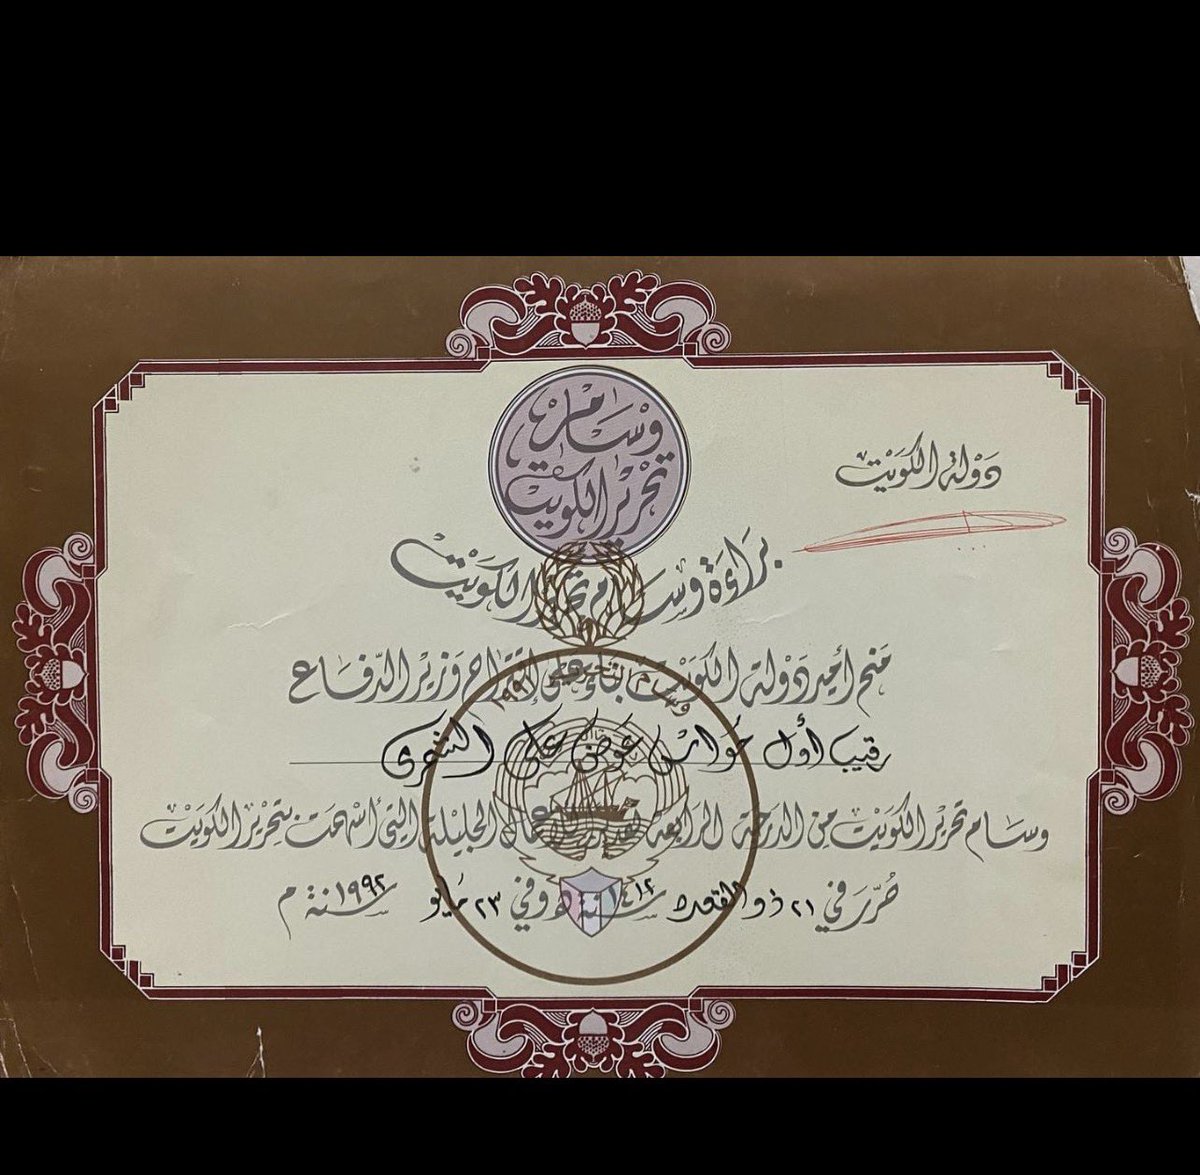 وسام
تحرير الكويت
دولة الكويت
براءة وسام تحرير الكويت
وسام التحرير ١٩٩١
منح أمير دولة الكويت بناء على إقتراح وزير الدفاع
رقيب أول عوض علي
وسام تحرير الكويت من الدرجة الرابعة للأعمال الجليلة التي أسهمت بتحرير الكويت
حُرّر في ٢١ ذو القعدة سنة ١٤١٢ هـ وفي ٢٣ مايو سنة ١٩٩٢ م